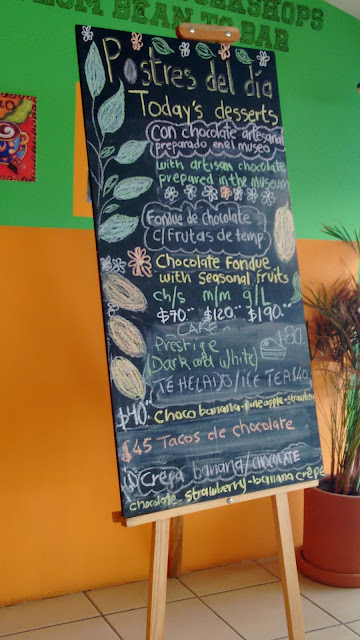 WORKSHOPS
FROM BEAN TO BAR
Postres del día
Today's desserts
con chocolate artesanal
preparado en el museo
with artisan chocolate
prepared in the museum
Fondue de chocolate
c/Frutas de temp
Chocolate Fondue
with seasonal fruits
ch/s m/m g/L
$70.°° $120.°° $190.°°
CAKE
Prestige $80.
(Dark and white)
TE HELADO/ICE TEA $40
$40.°° Choco banana-pineapple-strawberr
$45 Tacos de chocolate
Crepa banana/CHOCOLATE
chocolate-strawberry-banana crêpe